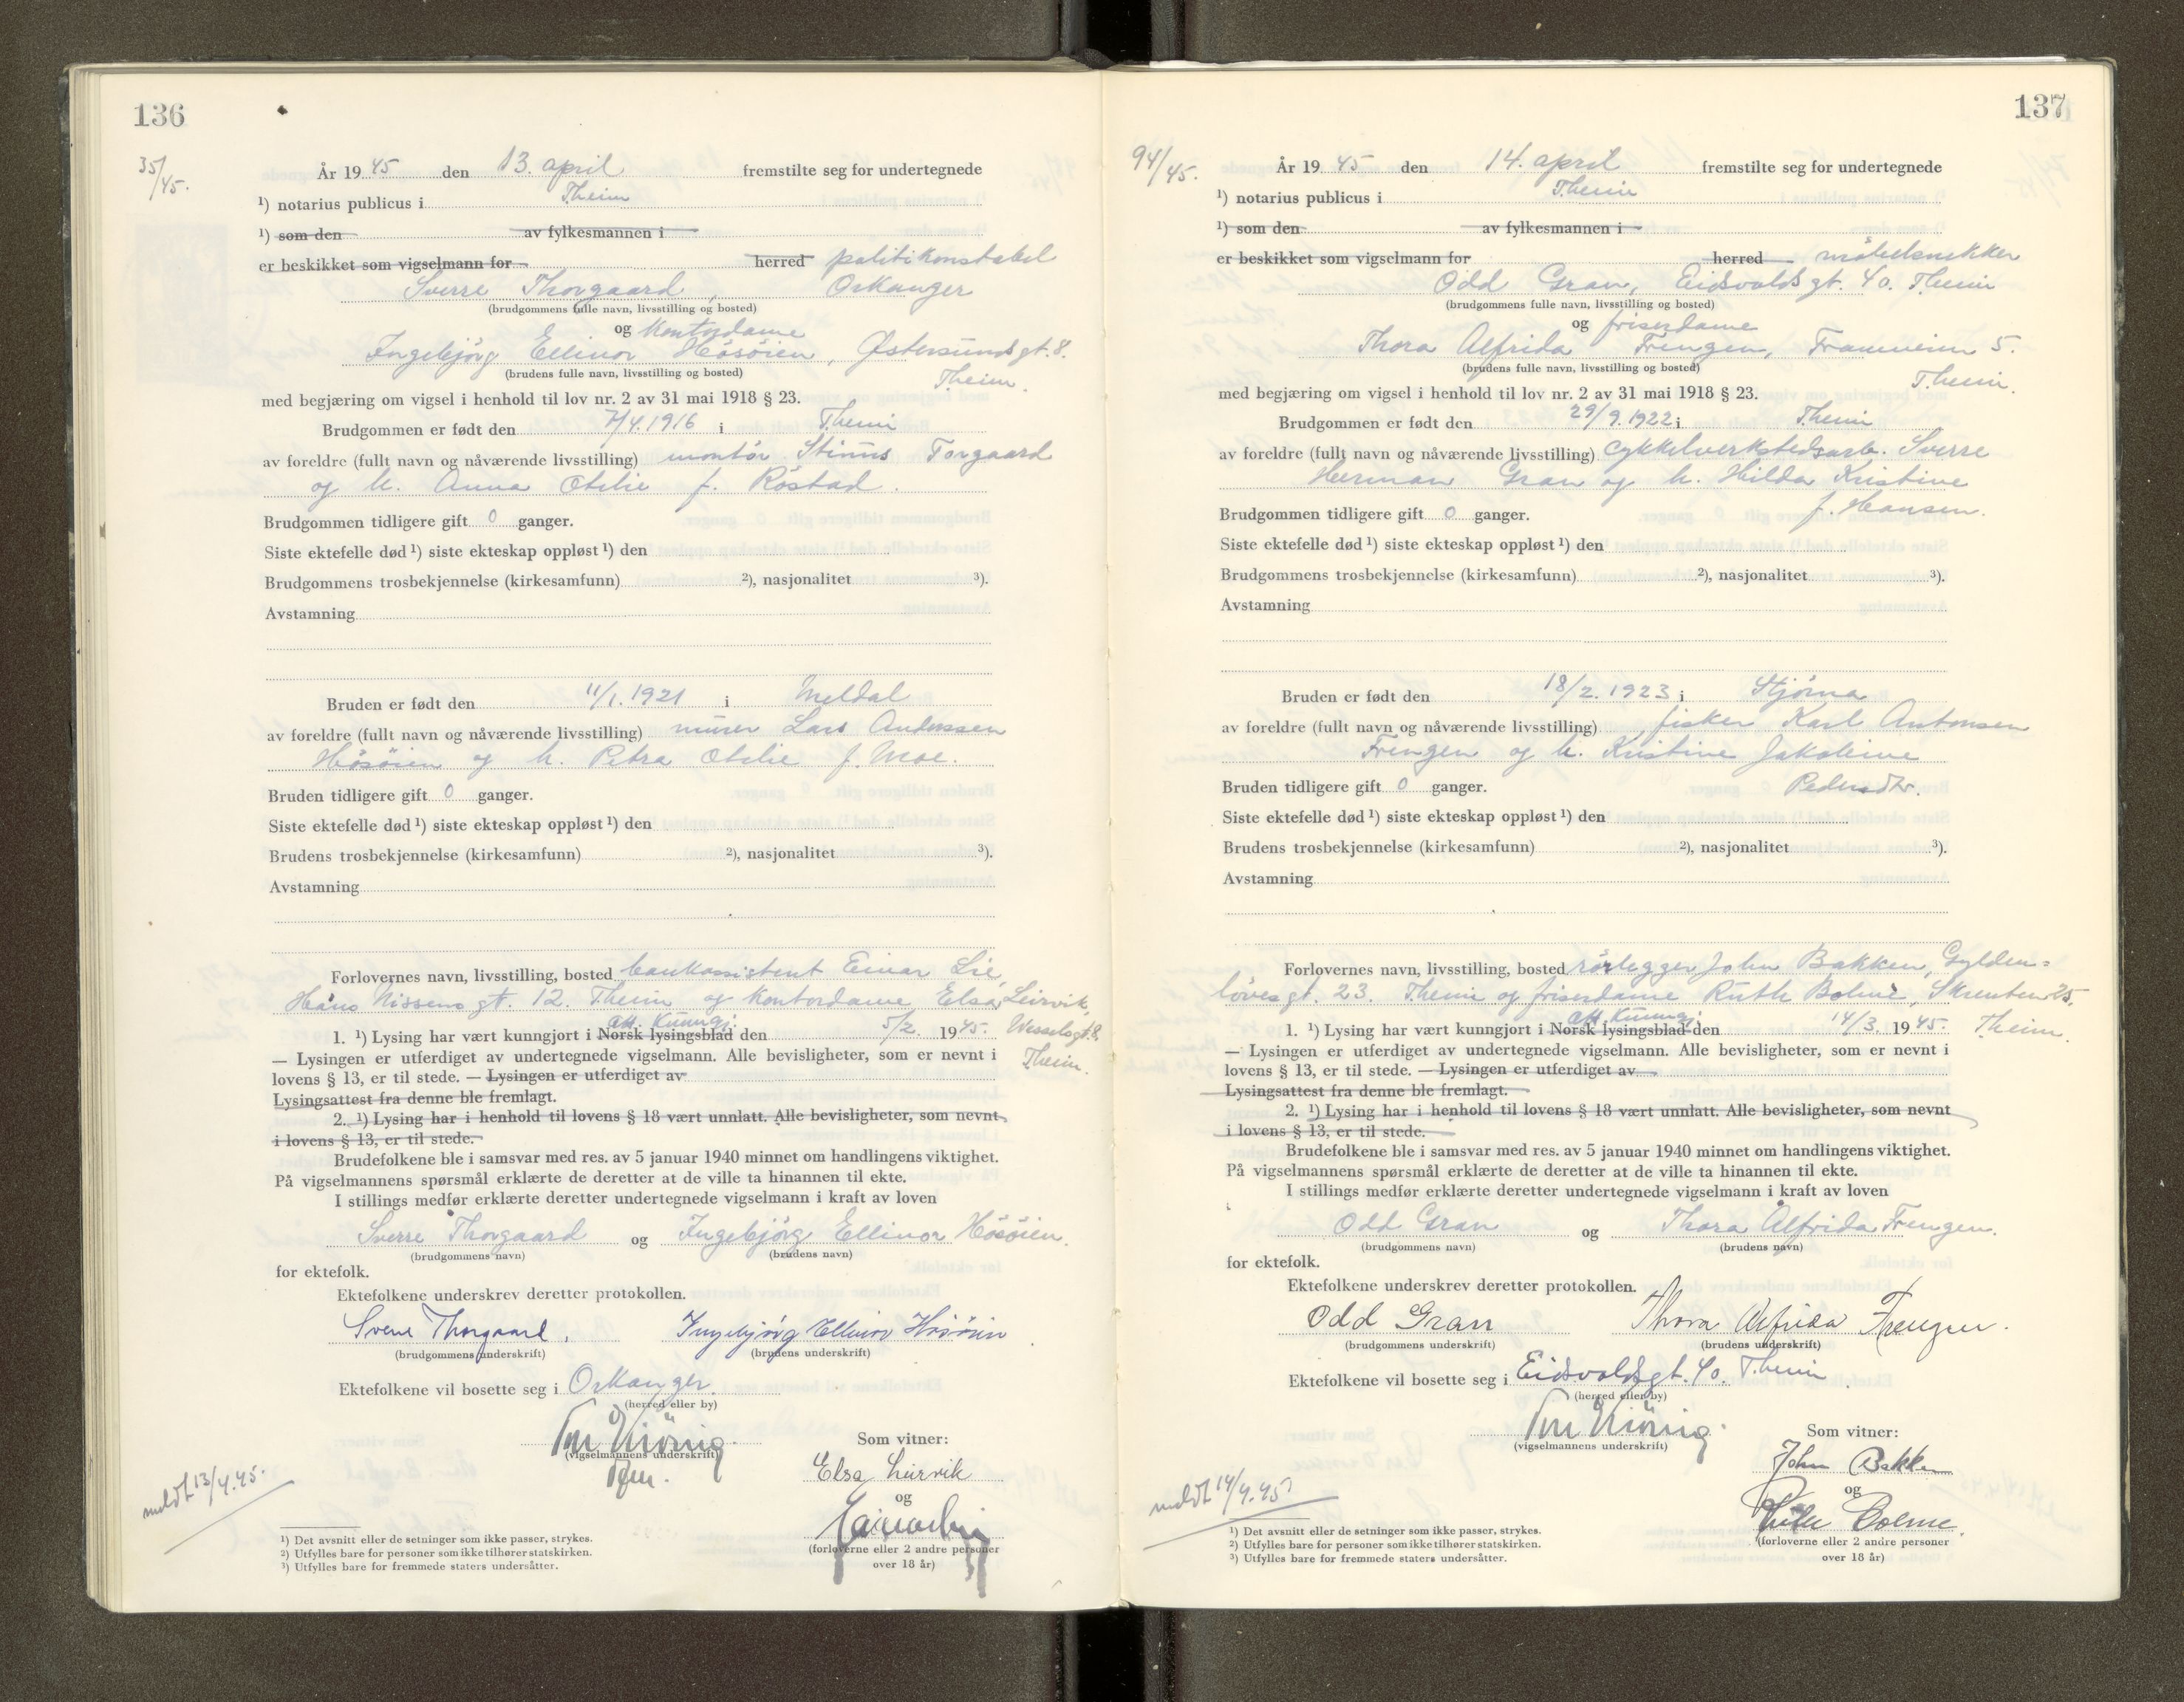 136
35/45.
År 1945 den 13. april fremstilte seg for undertegnede
¹) notarius publicus i Theim
¹) som den av fylkesmannen i
er beskikket som vigselmann for herred politikonstabel
Sverre Thorgaard, Orkanger
(brudgommens fulle navn, livsstilling og bosted)
og kontordame
Ingebjörg Ellinor Hösöien, Østersundsgt. 8.
(brudens fulle navn, livsstilling og bosted)
Theim.
med begjæring om vigsel i henhold til lov nr. 2 av 31 mai 1918 § 23.
Brudgommen er født den 7/4.1916 i Theim
av foreldre (fullt navn og nåværende livsstilling) montör Torgaard
og h. Anna Otilie f. Röstad.
Brudgommen tidligere gift 0 ganger.
Siste ektefelle død ¹) siste ekteskap oppløst ¹) den
Brudgommens trosbekjennelse (kirkesamfunn) ²), nasjonalitet ³).
Avstamning
Bruden er født den 11/1.1921 i Meldal
av foreldre (fullt navn og nåværende livsstilling) murer Lars Anderssen
Hösöien og h. Petra Otilie f. Moe.
Bruden tidligere gift 0 ganger.
Siste ektefelle død ¹) siste ekteskap oppløst ¹) den
Brudens trosbekjennelse (kirkesamfunn) ²), nasjonalitet ³).
Avstamning
Forlovernes navn, livsstilling, bosted bankassistent Einar Lie,
Hans Nissens gt. 12. Theim og kontordame Elsa Leirvik,
att. kunngj.
1. ¹) Lysing har vært kunngjort i Norsk lysingsblad den 5/2. 1945. Wesselsgt. 8.
— Lysingen er utferdiget av undertegnede vigselmann. Alle bevisligheter, som er nevnt i
Theim.
lovens § 13, er til stede. — Lysingen er utferdiget av
Lysingsattest fra denne ble fremlagt.
2. ¹) Lysing har i henhold til lovens § 18 vært unnlatt. Alle bevisligheter, som nevnt
i lovens § 13, er til stede.
Brudefolkene ble i samsvar med res. av 5 januar 1940 minnet om handlingens viktighet.
På vigselmannens spørsmål erklærte de deretter at de ville ta hinannen til ekte.
I stillings medfør erklærte deretter undertegnede vigselmann i kraft av loven
Sverre Thorgaard og Ingebjörg Ellinor Hösöien.
(brudgommens navn) (brudens navn)
for ektefolk.
Ektefolkene underskrev deretter protokollen.
Sverre Thorgaard. Ingebjörg Ellinor Hösöien
(brudgommens underskrift) (brudens underskrift)
Ektefolkene vil bosette seg i Orkanger.
(herred eller by)
(vigselmannens underskrift)
Som vitner:
Elsa Leirvik
og
Einar Lie
(forloverne eller 2 andre personer
over 18 år)
meldt 13/4.45.
¹) Det avsnitt eller de setninger som ikke passer, strykes.
²) Utfylles bare for personer som ikke tilhører statskirken.
³) Utfylles bare for fremmede staters undersåtter.
137
94/45.
År 1945 den 14. april fremstilte seg for undertegnede
¹) notarius publicus i Theim
¹) som den av fylkesmannen i
er beskikket som vigselmann for herred möbelsnekker
Odd Gran, Eidsvolds gt. 40. Theim
(brudgommens fulle navn, livsstilling og bosted)
og friserdame
Thora Alfrida Frengen, Framveien 5.
(brudens fulle navn, livsstilling og bosted)
Theim.
med begjæring om vigsel i henhold til lov nr. 2 av 31 mai 1918 § 23.
Brudgommen er født den 29/9.1922 i Theim
av foreldre (fullt navn og nåværende livsstilling) cykkelverkstedsarb. Sverre
Herman Gran og h. Hilda Kristine
Brudgommen tidligere gift 0 ganger. f. Hansen.
Siste ektefelle død ¹) siste ekteskap oppløst ¹) den
Brudgommens trosbekjennelse (kirkesamfunn) ²), nasjonalitet ³).
Avstamning
Bruden er født den 18/2. 1923 i Stjörna
av foreldre (fullt navn og nåværende livsstilling) fisker Karl Antonsen
Frengen og h. Kristine Jakobine
Bruden tidligere gift 0 ganger. Pedersdtr.
Siste ektefelle død ¹) siste ekteskap oppløst ¹) den
Brudens trosbekjennelse (kirkesamfunn) ²), nasjonalitet ³).
Avstamning
Forlovernes navn, livsstilling, bosted rörlegger John Bakken, Gylden=
lövesgt. 23. Theim og friserdame Ruth Bolme, Skrenten 25.
att. kunngj.
1. ¹) Lysing har vært kunngjort i Norsk lysingsblad den 14/3. 1945. Theim.
— Lysingen er utferdiget av undertegnede vigselmann. Alle bevisligheter, som er nevnt i
lovens § 13, er til stede. — Lysingen er utferdiget av
Lysingsattest fra denne ble fremlagt.
2. ¹) Lysing har i henhold til lovens § 18 vært unnlatt. Alle bevisligheter, som nevnt
i lovens § 13, er til stede.
Brudefolkene ble i samsvar med res. av 5 januar 1940 minnet om handlingens viktighet.
På vigselmannens spørsmål erklærte de deretter at de ville ta hinannen til ekte.
I stillings medfør erklærte deretter undertegnede vigselmann i kraft av loven
Odd Gran og Thora Alfrida Frengen.
(brudgommens navn) (brudens navn)
for ektefolk.
Ektefolkene underskrev deretter protokollen.
Odd Gran Thora Alfrida Frengen.
(brudgommens underskrift) (brudens underskrift)
Ektefolkene vil bosette seg i Eidsvoldsgt. 40. Theim
(herred eller by)
(vigselmannens underskrift)
Som vitner:
John Bakken
og
Ruth Bolme.
(forloverne eller 2 andre personer
over 18 år)
meldt 14/4.45
¹) Det avsnitt eller de setninger som ikke passer, strykes.
²) Utfylles bare for personer som ikke tilhører statskirken.
³) Utfylles bare for fremmede staters undersåtter.